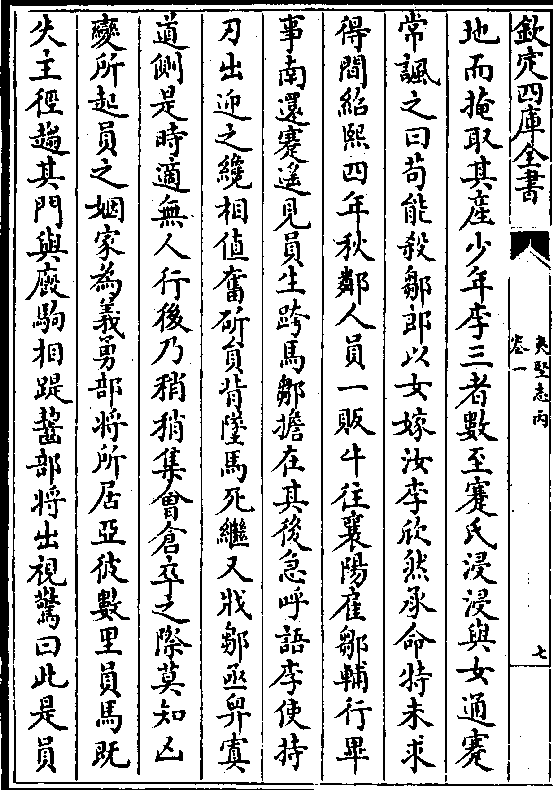 欽定四庫全書
夷堅志丙
卷一
七
地而掩取其產少年李三者數至蹇氏浸浸與女通蹇
常諷之曰苟能殺鄒郎以女嫁汝李欣然承命特未求
得間紹熙四年秋鄰人員一販牛往襄陽雇鄒輔行畢
事南還蹇遥見員生跨馬鄒擔在其後急呼語李使持
刀出迎之纔相值奮斫員背墜馬死繼又戕鄒亟舁寘
道側是時適無人行後乃稍稍集會倉卒之際莫知
變所起員之姻家為義勇部將所居亞彼數里員馬既
失主徑趨其門與廐駒相踶齧部將出視驚曰此是員